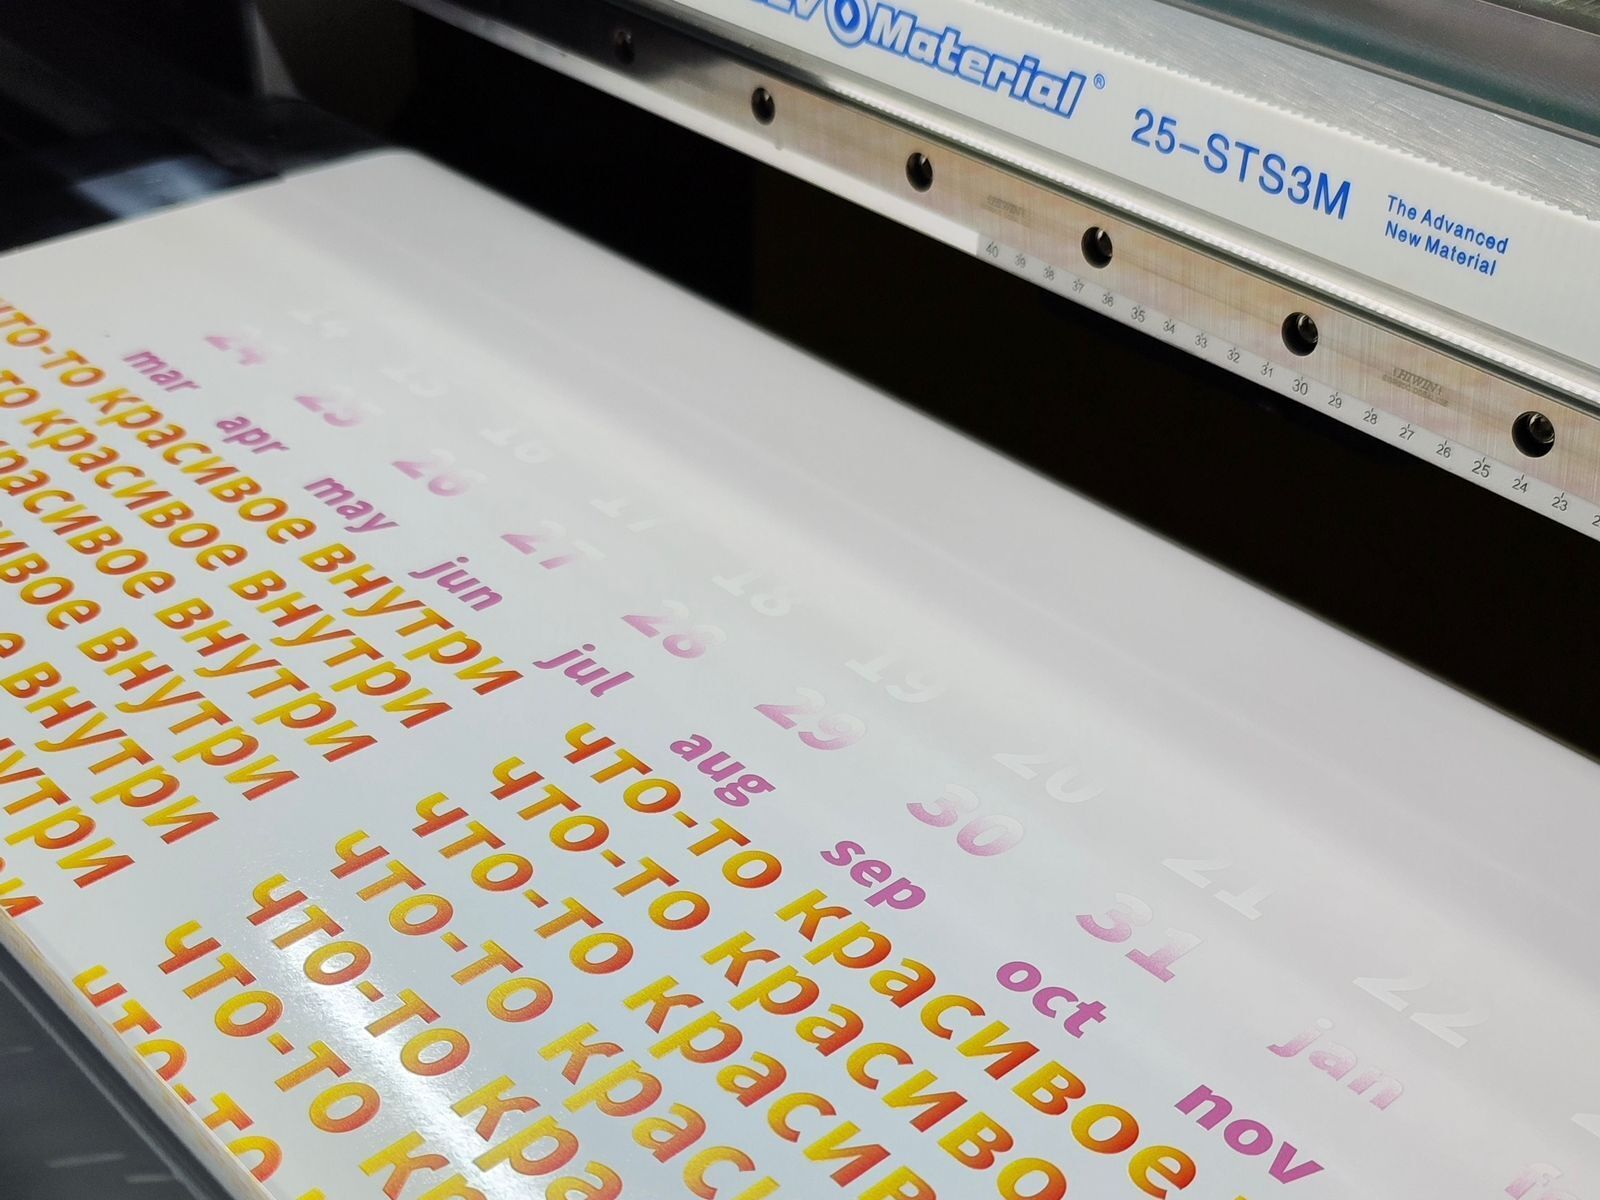 Material®
25-STS3M
The Advanced
New Material
HIWIN
40 39 38 37 36 35 34 33 32 31 30 29 28 27 26 25 24 23
HIWIN
14
17 18 19 20 21 22
24 25 26 27 28 29 30 31
jan
mar apr may jun jul aug sep oct nov
что-то красивое внутри
то красивое внутри
красивое внутри
внутри
внутри
что-то красивое
что-то красиво
что-то красив
что-то
что-то
что-то